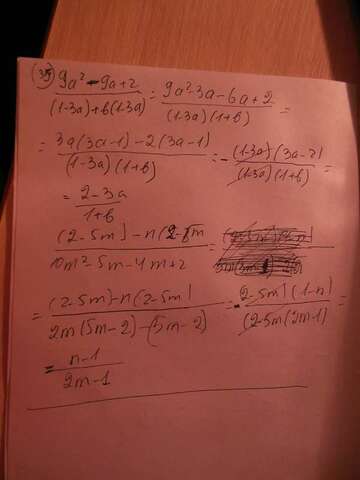 35) 9a² - 9a + 2 / (1-3a)+b(1-3a) = 9a²-3a-6a+2 / (1-3a)(1+b) =
= 3a(3a-1)-2(3a-1) / (1-3a)(1+b) = - (1-3a)(3a-2) / (1-3a)(1+b) =
= 2-3a / 1+b
(2-5m)-n(2-5m / 10m²-5m-4m+2 =
= (2-5m)-n(2-5m) / 2m(5m-2)-(5m-2) = - 2-5m)(1-n) / (2-5m(2m-1) =
= n-1 / 2m-1